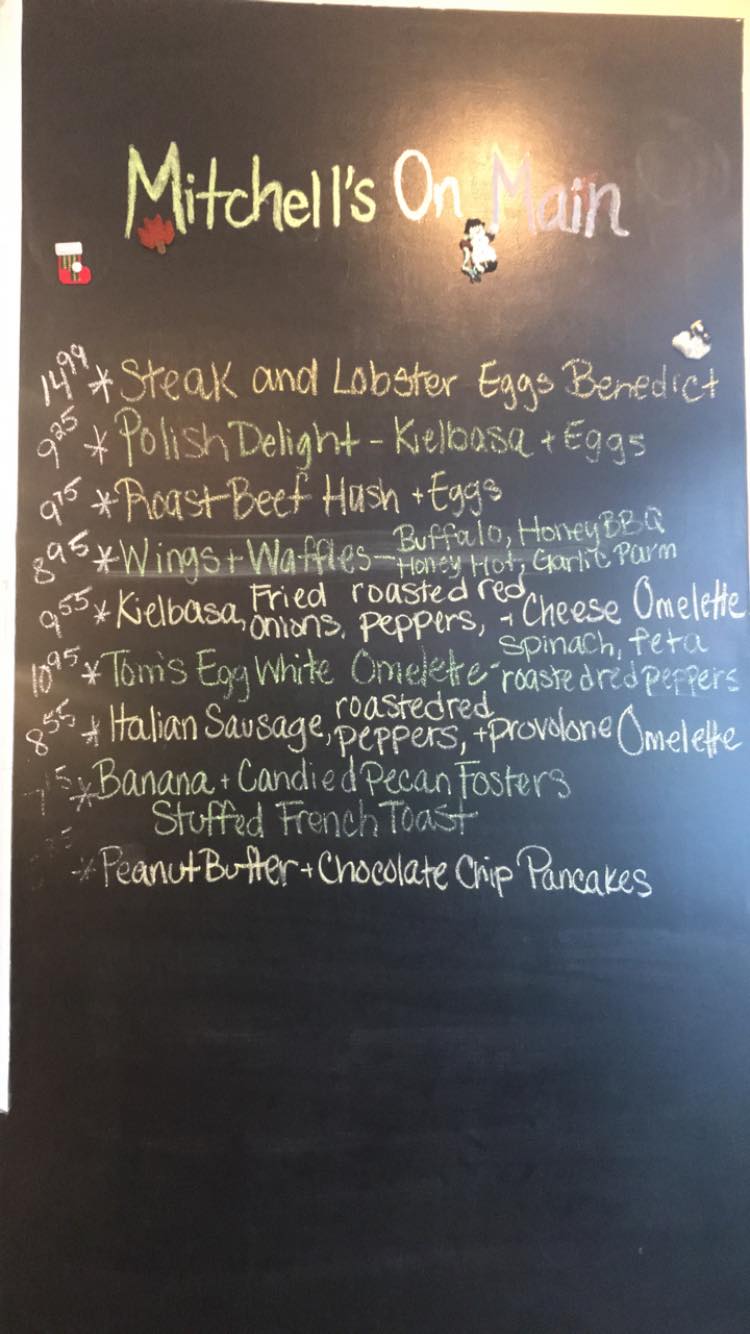 Mitchell's On Main
14.99 * Steak and Lobster Eggs Benedict
9.25 * Polish Delight - Kielbasa + Eggs
9.75 * Roast Beef Hash + Eggs
8.95 * Wings + Waffles - Buffalo, Honey BBQ
Honey Hot, Garlic Parm
9.55 * Kielbasa, Fried onions, roasted red peppers, + Cheese Omelette
10.95 * Tom's Egg White Omelette - spinach, feta
roasted red peppers
8.55 * Italian Sausage, roasted red peppers, + provolone Omelette
* Banana + Candied Pecan Fosters
Stuffed French Toast
* Peanut Butter + Chocolate Chip Pancakes